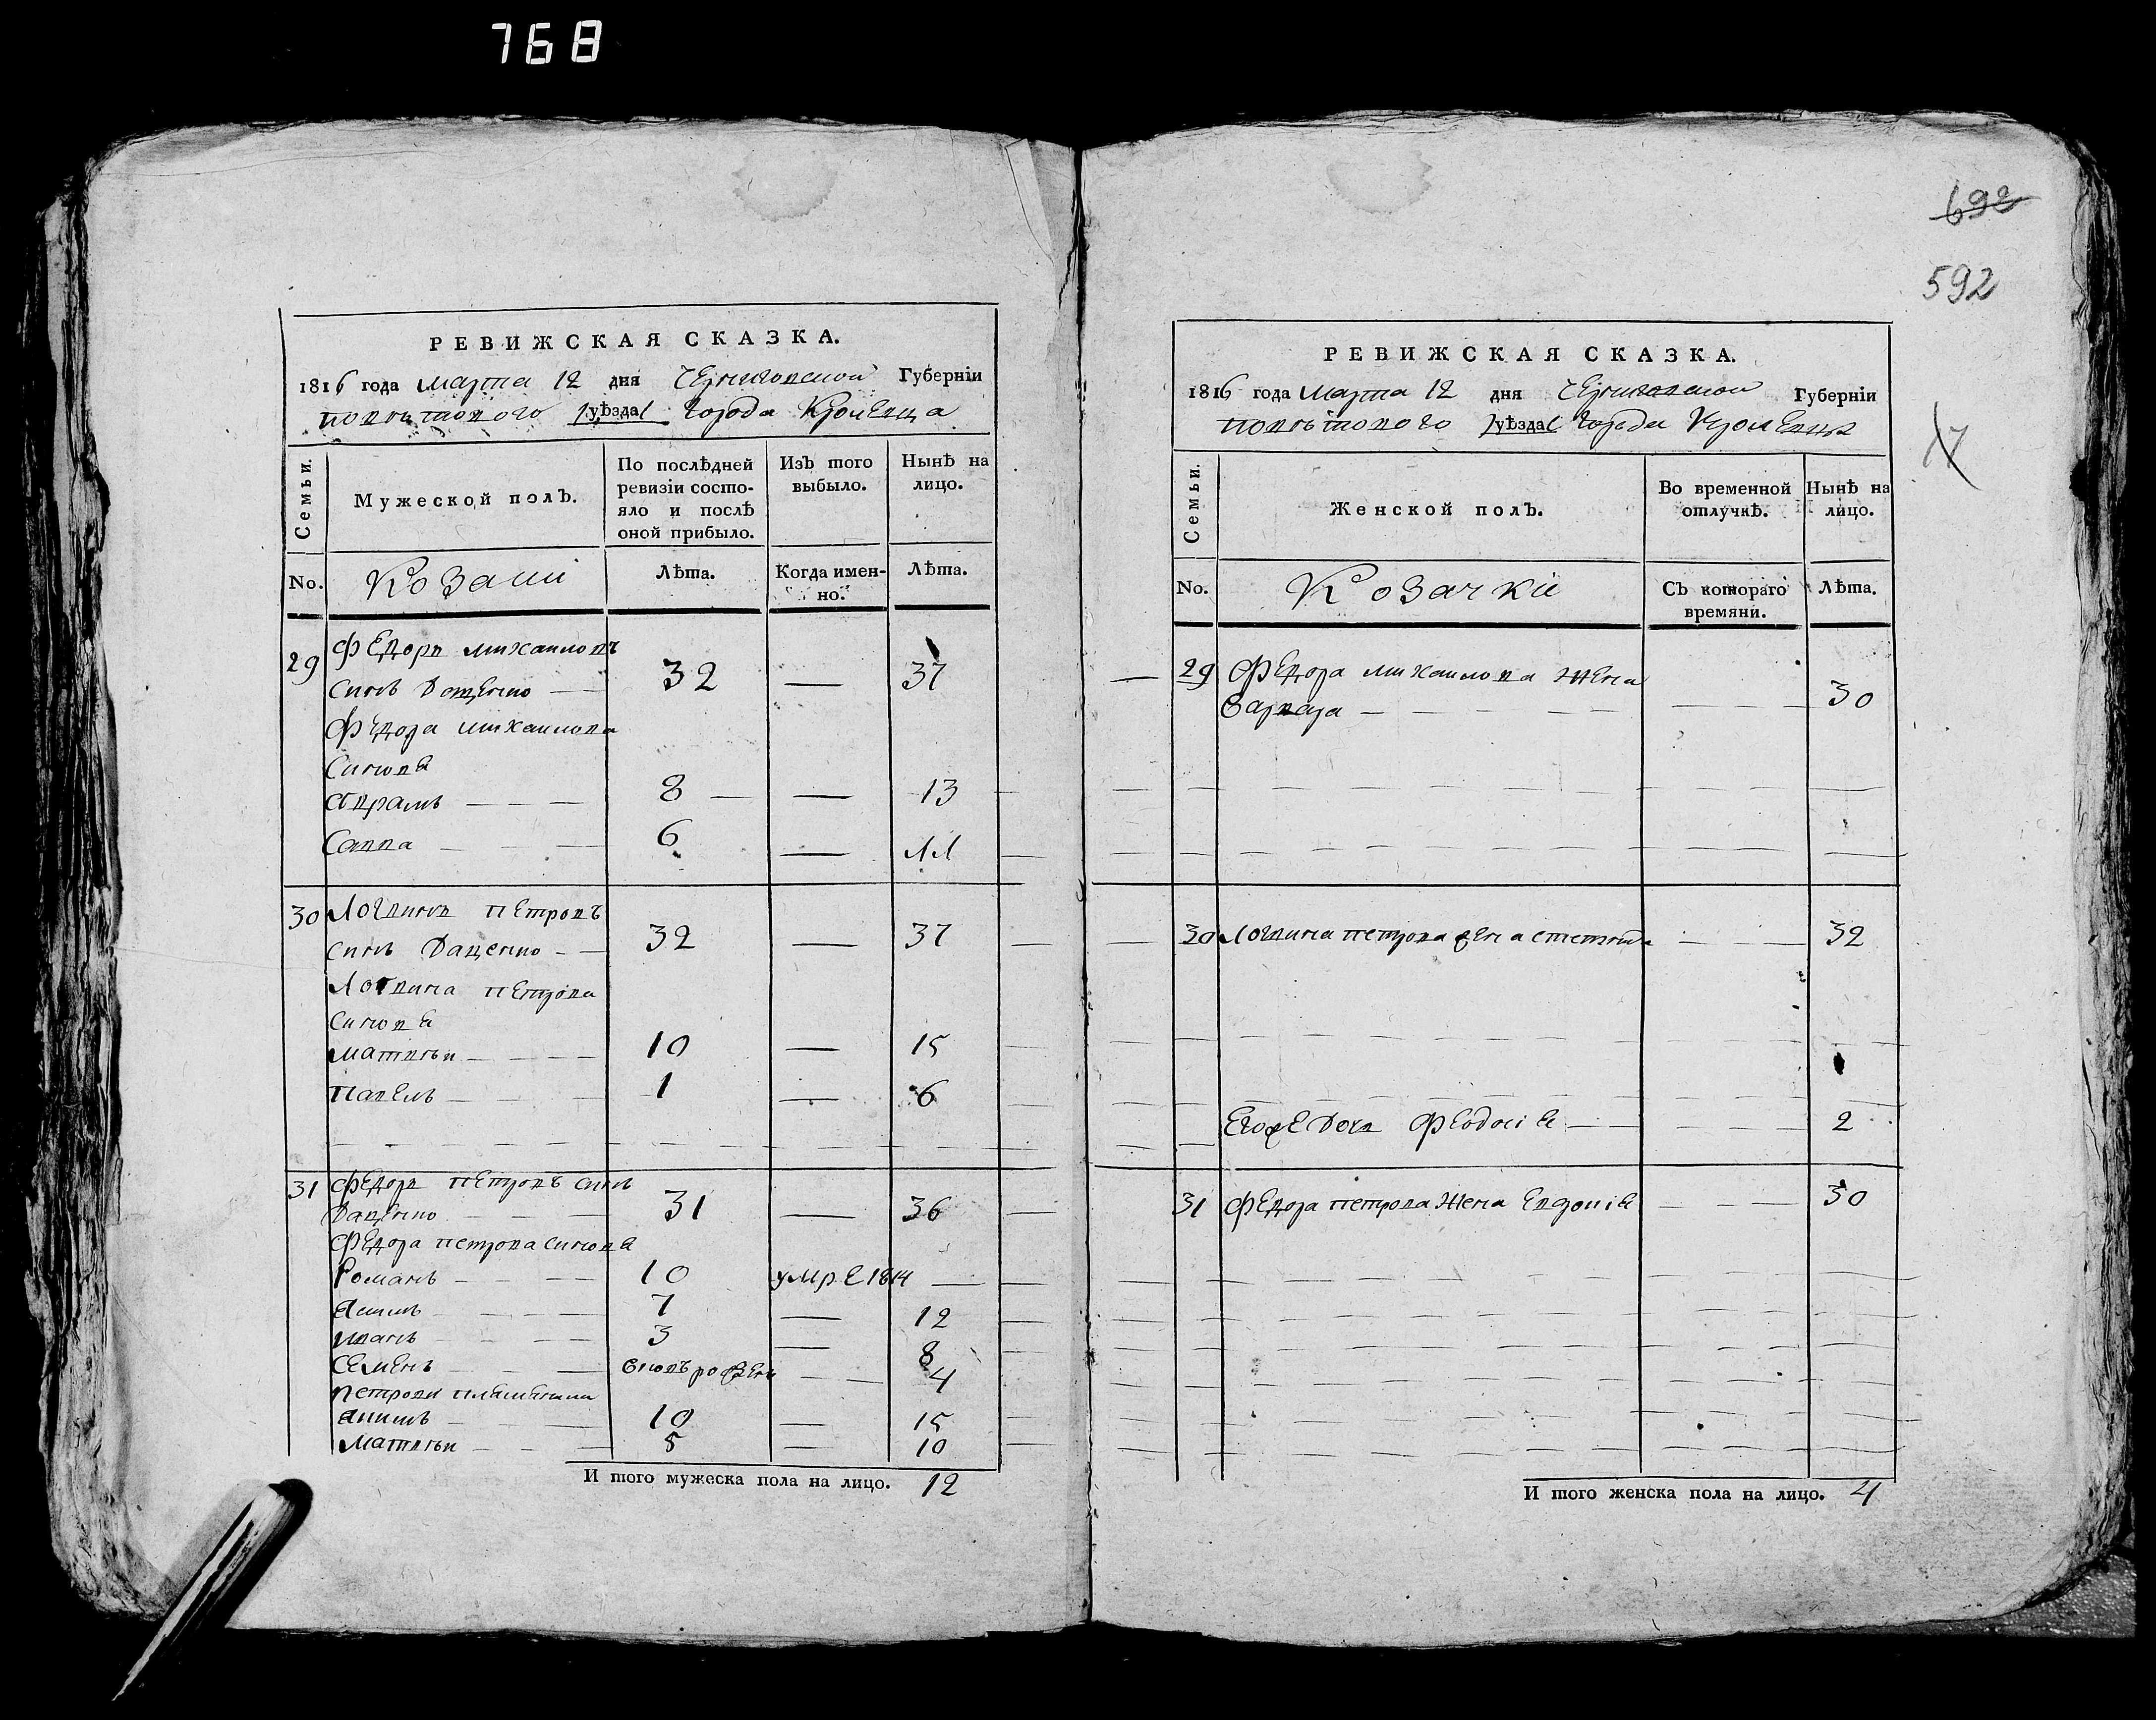 768
РЕВИЖСКАЯ СКАЗКА.
1816 года марта 12 дня Черниговской Губерніи
повѣтового /уѣзда/ города Кролевца
Семьи.
Мужеской полъ.
По послѣдней ревизіи состо-
яло и послѣ
оной прибыло.
Изъ того
выбыло.
Нынѣ на
лицо.
No.
Козаки
Лѣта.
Когда имен-
но.
Лѣта.
29 Федоръ михаиловъ
синъ Даценко — 32 — 37
Федора михаилова
Синовя
аврамъ — — — 8 — — 13
Савва — — — 6 — 11
30 Логвинъ петровъ
синъ Даценко — — 32 — 37
Логвина петрова
Синовя
матвѣи — — — — 10 — 15
павелъ — — — — 1 — 6
31 Федоръ петровъ синъ
Даценко — — — 31 — 36
Федора петрова синовя
Романъ — — — — 10 умре 1814 —
акимъ — — — — 7 — 12
иванъ — — — — 3 — 8
Семенъ — — вновъ рожден — — 4
петрови племеники
10 — 15
матвѣи — — — 5 — 10
И того мужеска пола на лицо. 12
692
592
17
РЕВИЖСКАЯ СКАЗКА.
1816 года марта 12 дня Черниговской Губерніи
повѣтового /уѣзда/ города Кролевца
Семьи.
Женской полъ.
Во временной
отлучкѣ.
Нынѣ на
лицо.
No.
Козачкіи
Съ котораго
времяни.
Лѣта.
29 Федора михаилова жена
Варвара — — — — — — — — 30
30 Логвина петрова жена — — — 32
Егоже Дочь Феодосія — — — — — 2
31 Федора петрова жена Евдокія — — — 30
И того женска пола на лицо. 4